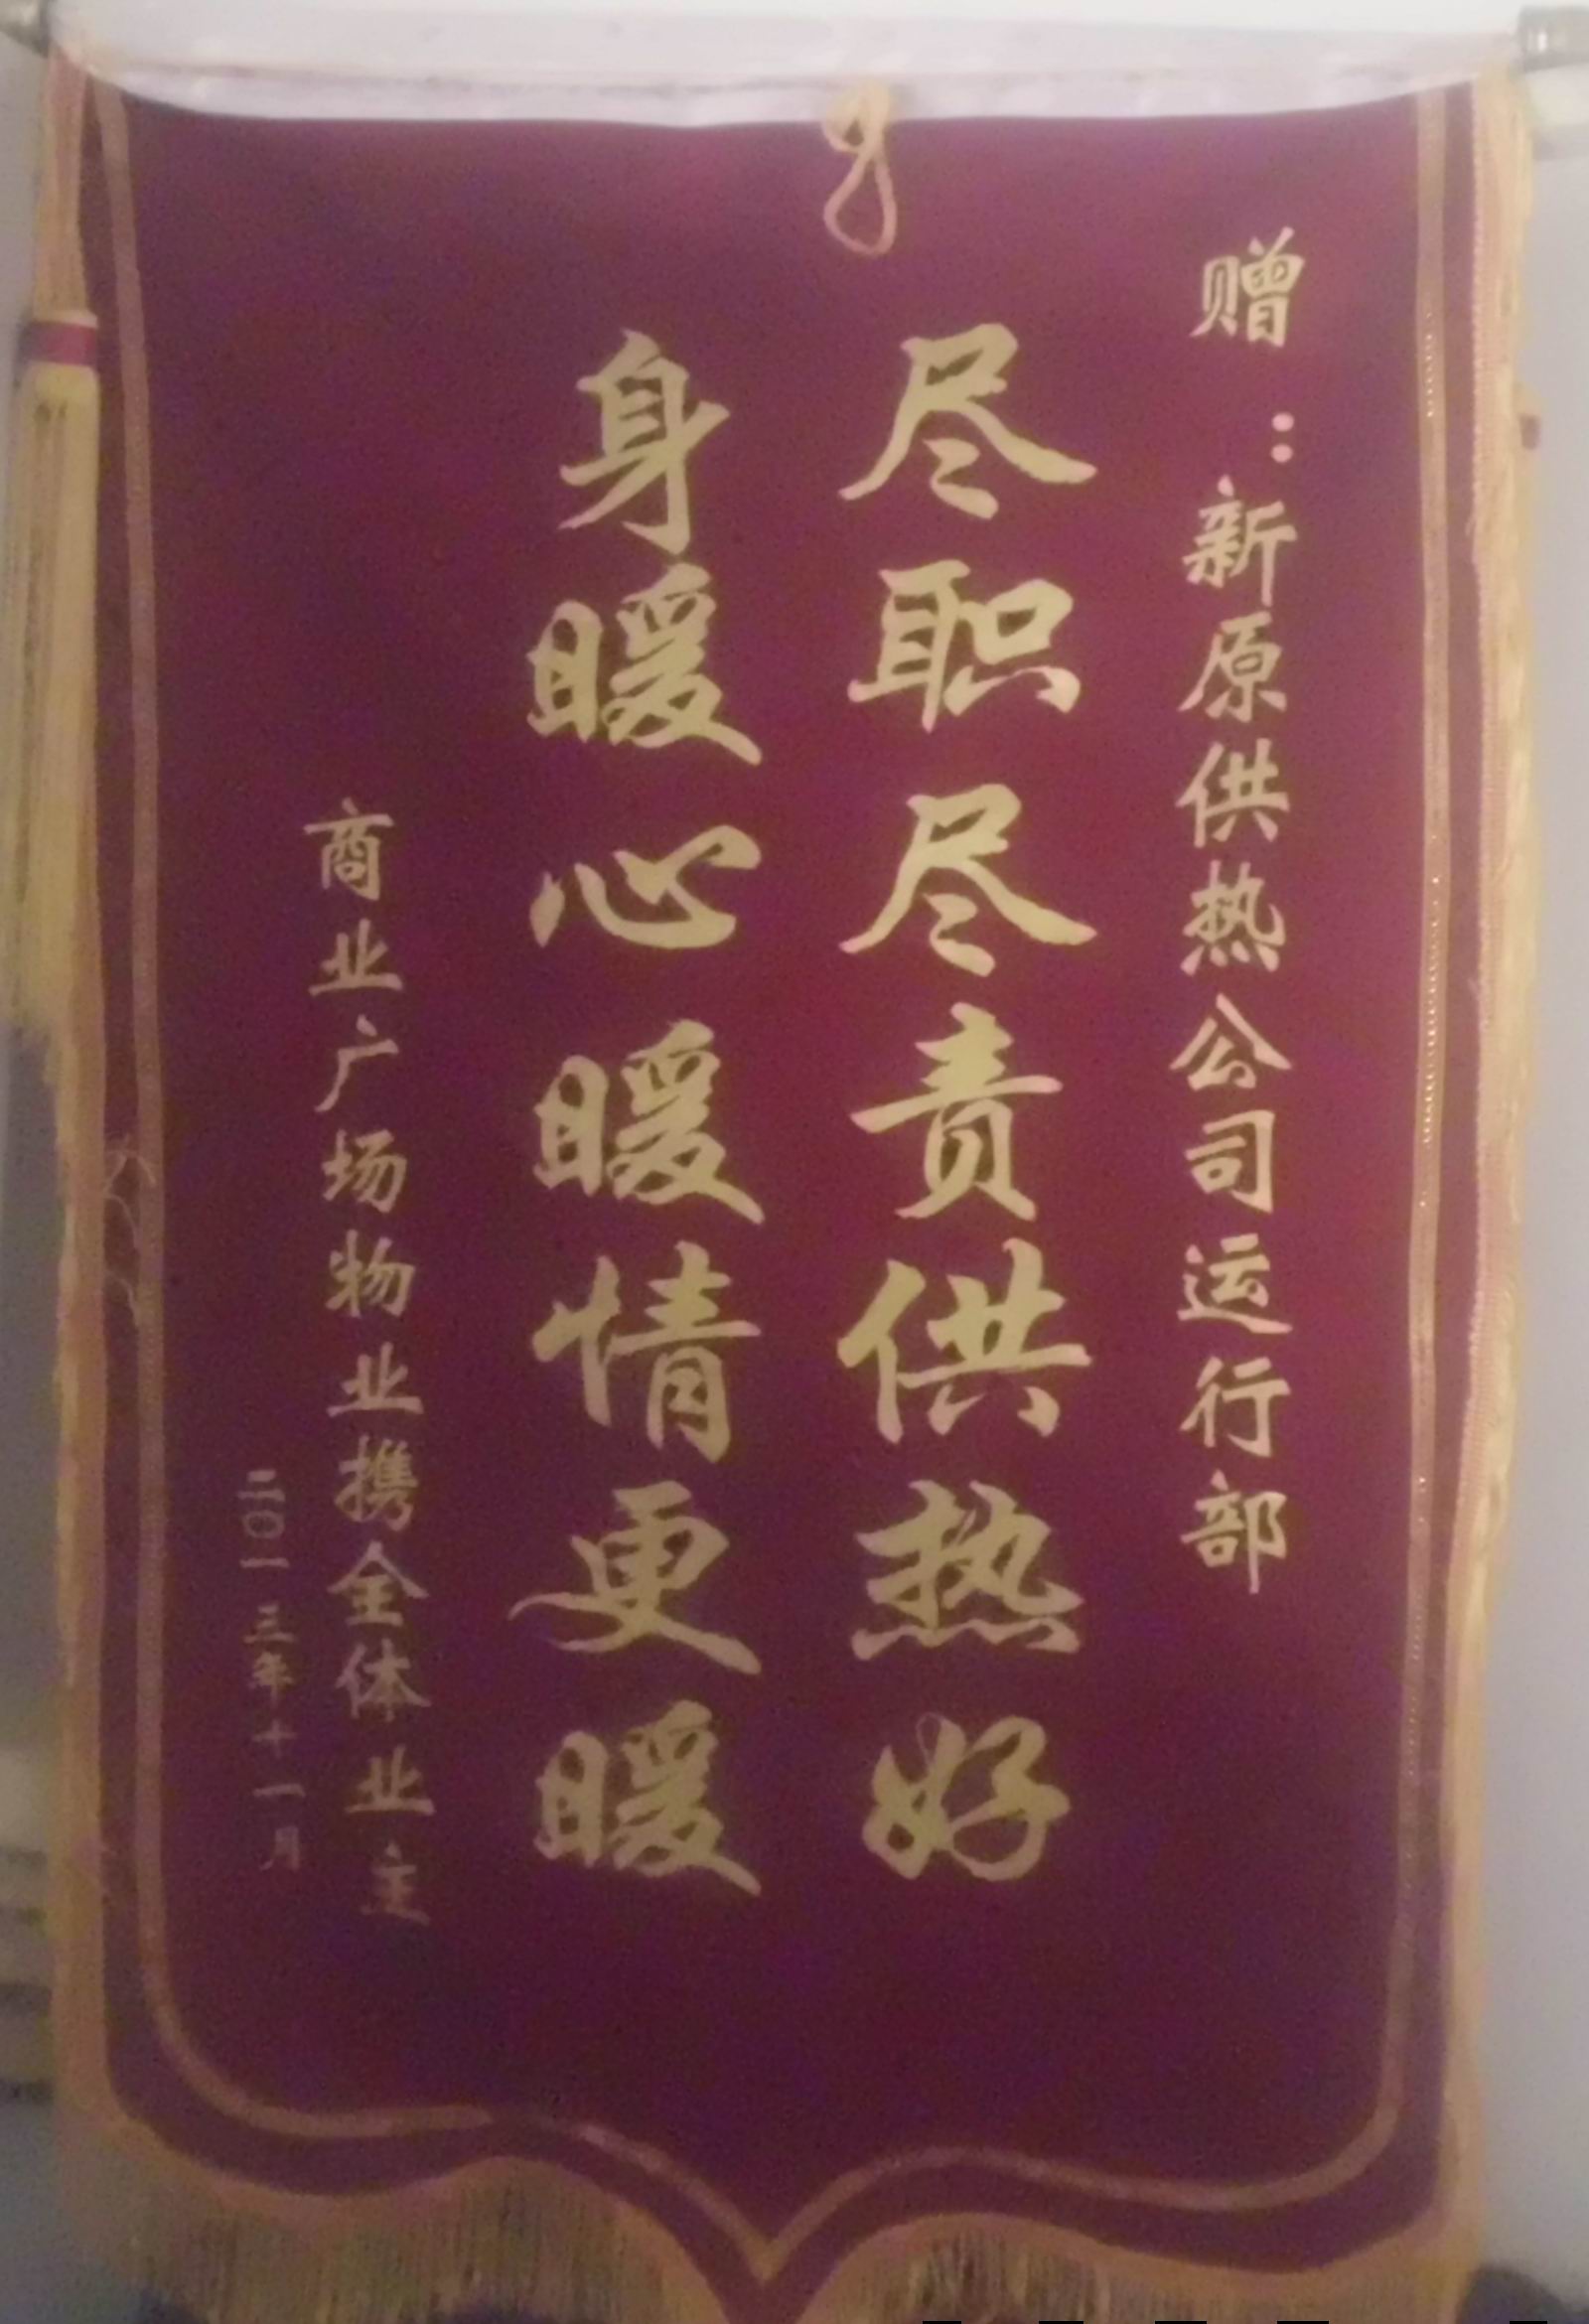 赠：新原供热公司运行部
尽职尽责供热好
身暖心暖情更暖
商业广场物业携全体业主
二〇一三年十一月